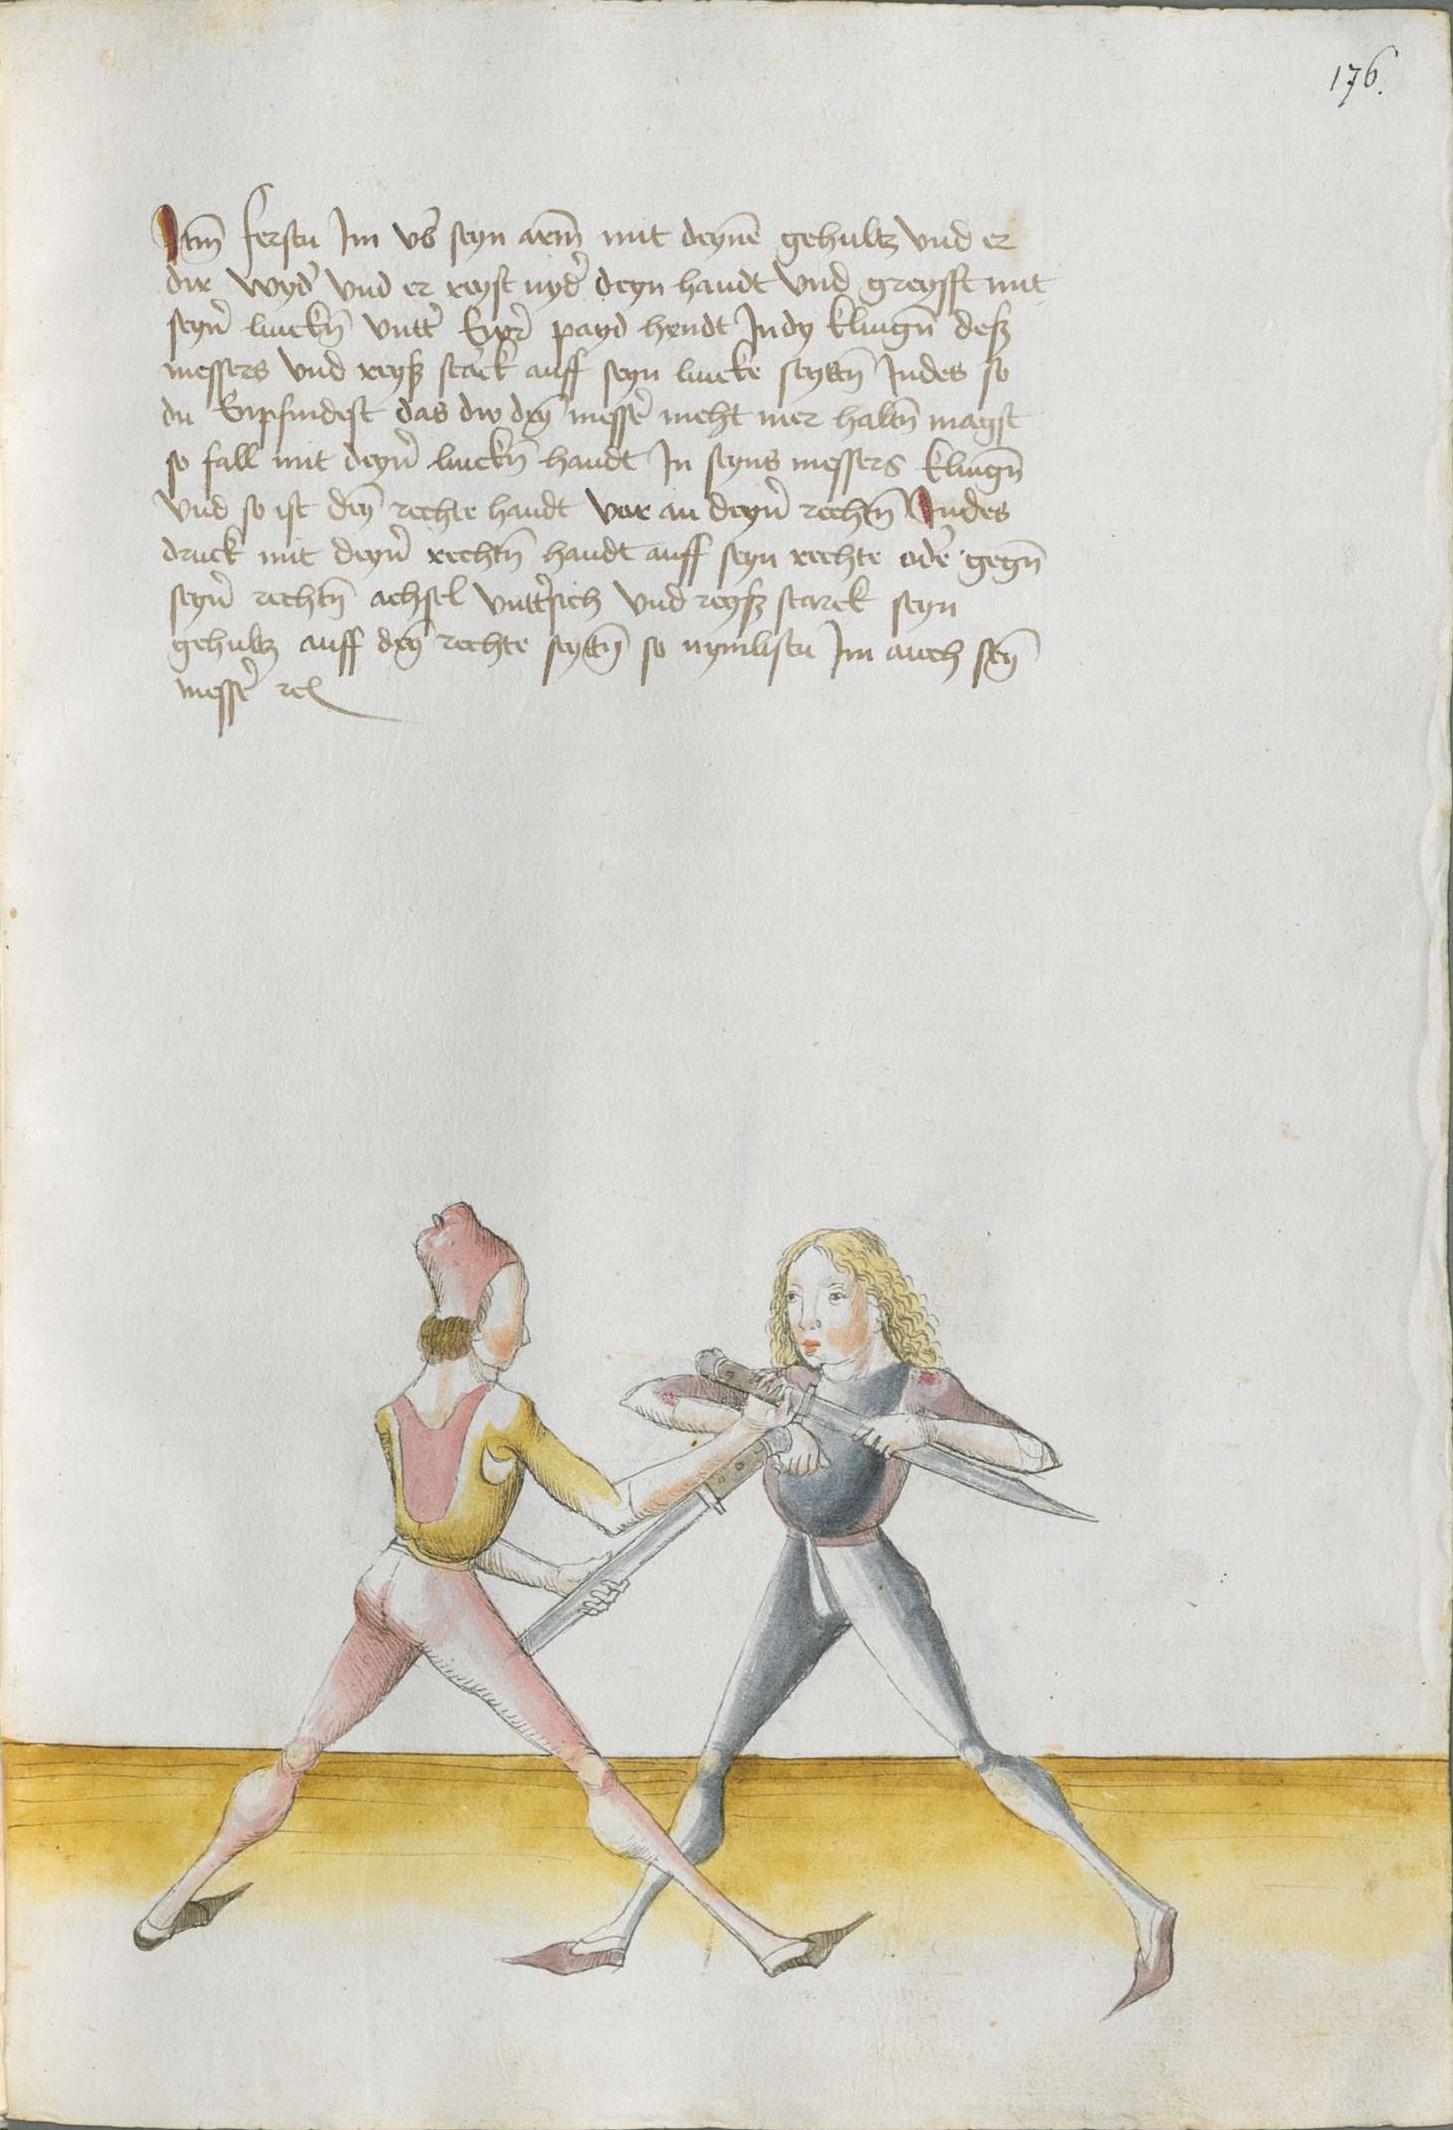 176.
Itm̄ ferstu Im vb̄ seyn arm̄ mit deynē gehultz vnd er
dir wyd' vnd er reyst nyd' deyn handt vnd greyfft mit
seyn' linckn̄ vntt' Ewr' payd hendt In dy klingn̄ deß
messers vnd reyß starck auff seyn lincke seyttn̄ Indes so
du Enpfindest das dw dey̅ messer̄ nicht mer haltn̄ magst
so fall mit deyn' linckn̄ handt In seyns messers klingn̄
vnd so ist dey̅ rechte handt vor an deyn' rechtn̄ Indes
druck mit deyn' rechtn̄ handt auff seyn rechte oder̄ gegn̄
seyn' rechtn̄ achsel vntt'sich vnd reyß starck seyn
gehultz auff dey̅ rechte seyttn̄ so nymbstu Im auch sey̅
messer̄ rc